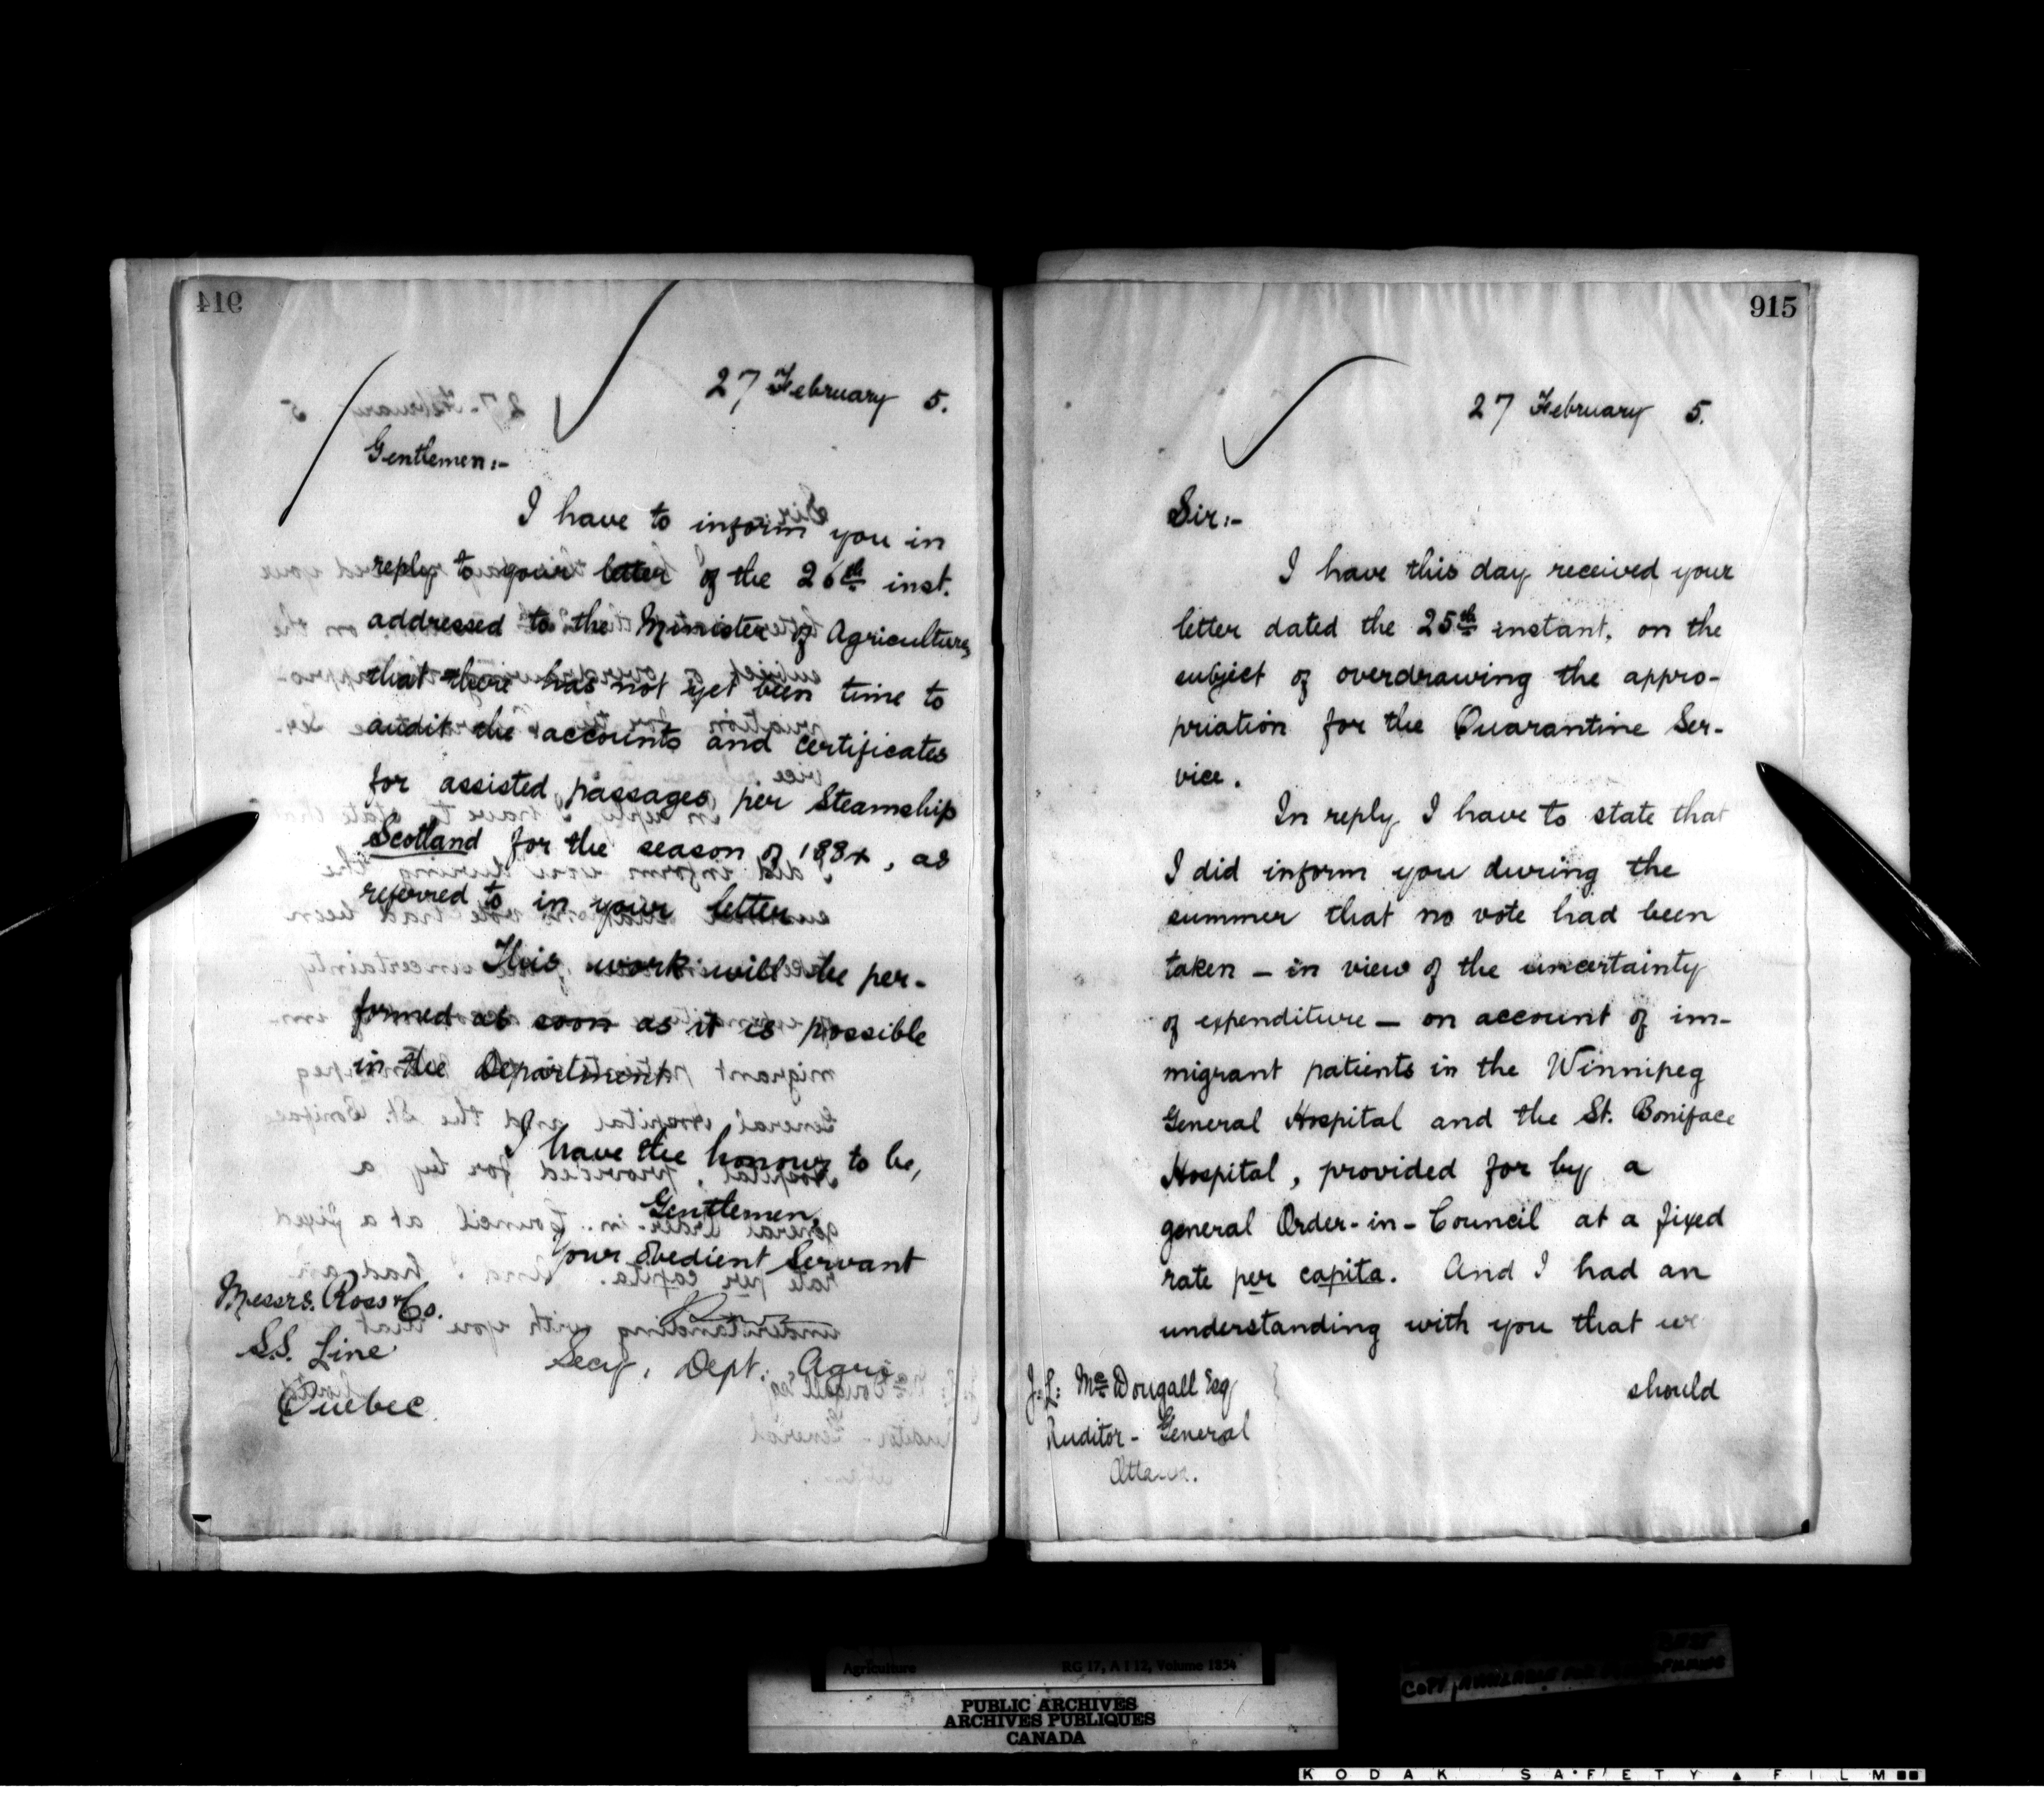 914
27 February 5.
Gentlemen:-
I have to inform you in
reply to your letter of the 26th inst.
addressed to the Minister of Agriculture,
that there has not yet been time to
audit the accounts and certificates
for assisted passages per Steamship
Scotland for the season of 1884, as
referred to in your letter
This work will be per-
formed as soon as it is possible
in the Department
I have the honour to be,
Gentlemen,
Your obedient Servant
Secy. Dept. Agri.
Messrs. Ross & Co.
S.S. Line
Quebec
915
27 February 5.
Sir:-
I have this day received your
letter dated the 25th instant, on the
subject of overdrawing the appro-
priation for the Quarantine Ser-
vice.
In reply I have to state that
I did inform you during the
summer that no vote had been
taken - in view of the uncertainty
of expenditure - on account of im-
migrant patients in the Winnipeg
General Hospital and the St. Boniface
Hospital, provided for by a
general Order-in-Council at a fixed
rate per capita. And I had an
understanding with you that we
should
J. L. McDougall Esq
Auditor-General
Ottawa.
Agriculture RG 17, A I 12, Volume 1854
PUBLIC ARCHIVES
ARCHIVES PUBLIQUES
CANADA
KODAK SAFETY FILM